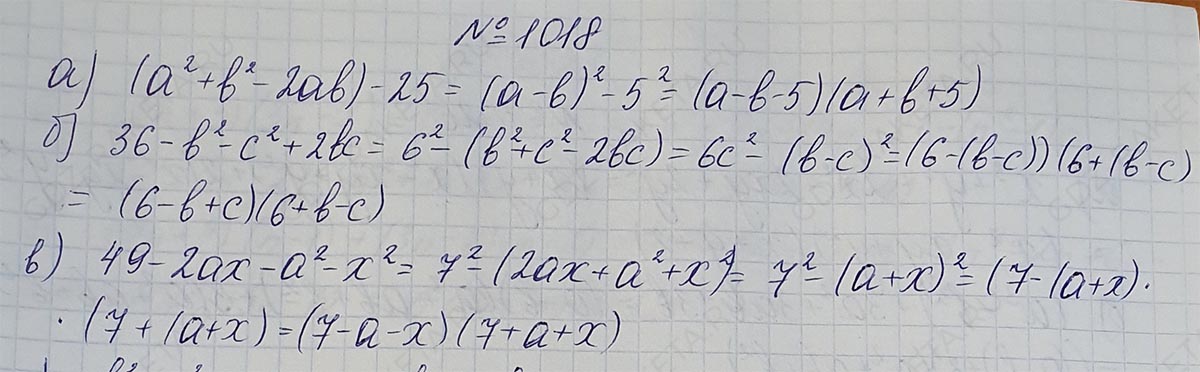 № 1018
а) (a² + b² - 2ab) - 25 = (a - b)² - 5² = (a - b - 5)(a + b + 5)
б) 36 - b² - c² + 2bc = 6² - (b² + c² - 2bc) = 6c² - (b - c)² = (6 - (b - c))(6 + (b - c)
= (6 - b + c)(6 + b - c)
в) 49 - 2ax - a² - x² = 7² - (2ax + a² + x²) = 7² - (a + x)² = (7 - (a + x) ·
· (7 + (a + x) = (7 - a - x)(7 + a + x)